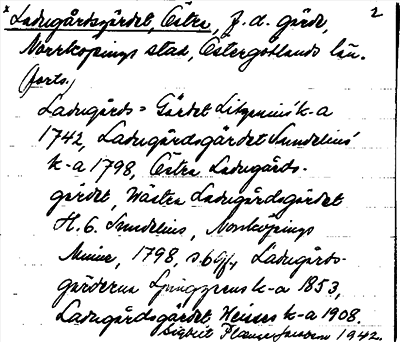 x Ladugårdsgärdet, Östra, f.d. gärde, 2
Norrköpings stad, Östergötlands län.
(forts.)
Ladugårds=Gärdet Litzenius' k-a
1742, Ladugårdsgärdet Sundelius'
k-a 1798, Östra Ladugårds-
gärdet, Wästra Ladugårdsgärdet
H. O. Sundelius, Norrköpings
Minne, 1798, s. 6 Ladugårds-
gärderna Ljunggrens k-a 1853,
Ladugårdsgärdet Heines k-a 1908.
1942.